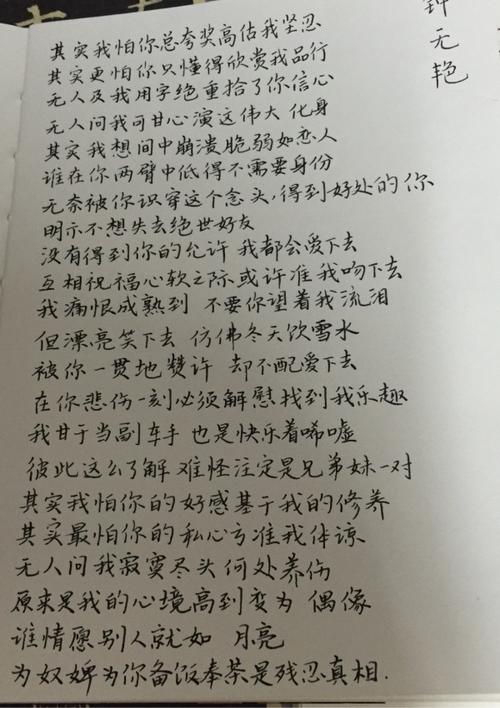 钟无艳
其实我怕你总夸奖高估我坚忍
其实更怕你只懂得欣赏我品行
无人及我用字绝重拾了你信心
无人问我可甘心演这伟大 化身
其实我想间中崩溃脆弱如恋人
谁在你两臂中低得不需要身份
无奈被你识穿这个念头,得到好处的你
明示不想失去绝世好友
没有得到你的允许 我都会爱下去
互相祝福心软之际或许准我吻下去
我痛恨成熟到 不要你望着我流泪
但漂亮笑下去 仿佛冬天饮雪水
被你一贯地赞许 却不配爱下去
在你悲伤一刻必须解慰找到我乐趣
我甘于当副车手 也是快乐着唏嘘
彼此这么了解 难怪注定是兄弟妹一对
其实我怕你的好感基于我的修养
其实最怕你的私心亏准我体谅
无人问我寂寞尽头何处养伤
原来是我的心境高到变为 偶像
谁情愿别人就如 月亮
为奴婢为你备饭奉茶是残忍真相.